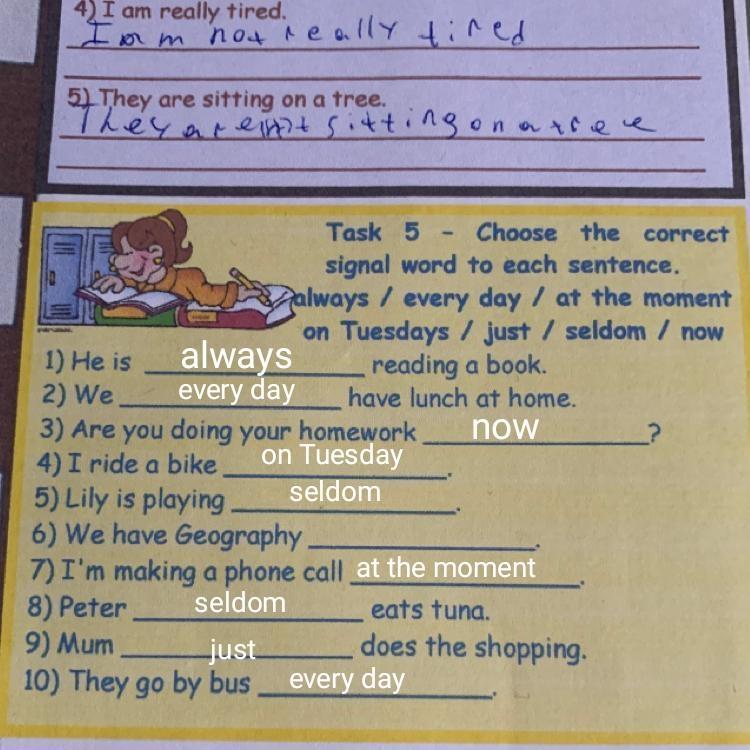 4) I am really tired.
I am not really tired
5) They are sitting on a tree.
They are sitting on a tree
Task 5 - Choose the correct
signal word to each sentence.
always / every day / at the moment
on Tuesdays / just / seldom / now
1) He is always reading a book.
2) We every day have lunch at home.
3) Are you doing your homework now ?
4) I ride a bike on Tuesday .
5) Lily is playing seldom .
6) We have Geography .
7) I'm making a phone call at the moment .
8) Peter seldom eats tuna.
9) Mum just does the shopping.
10) They go by bus every day .